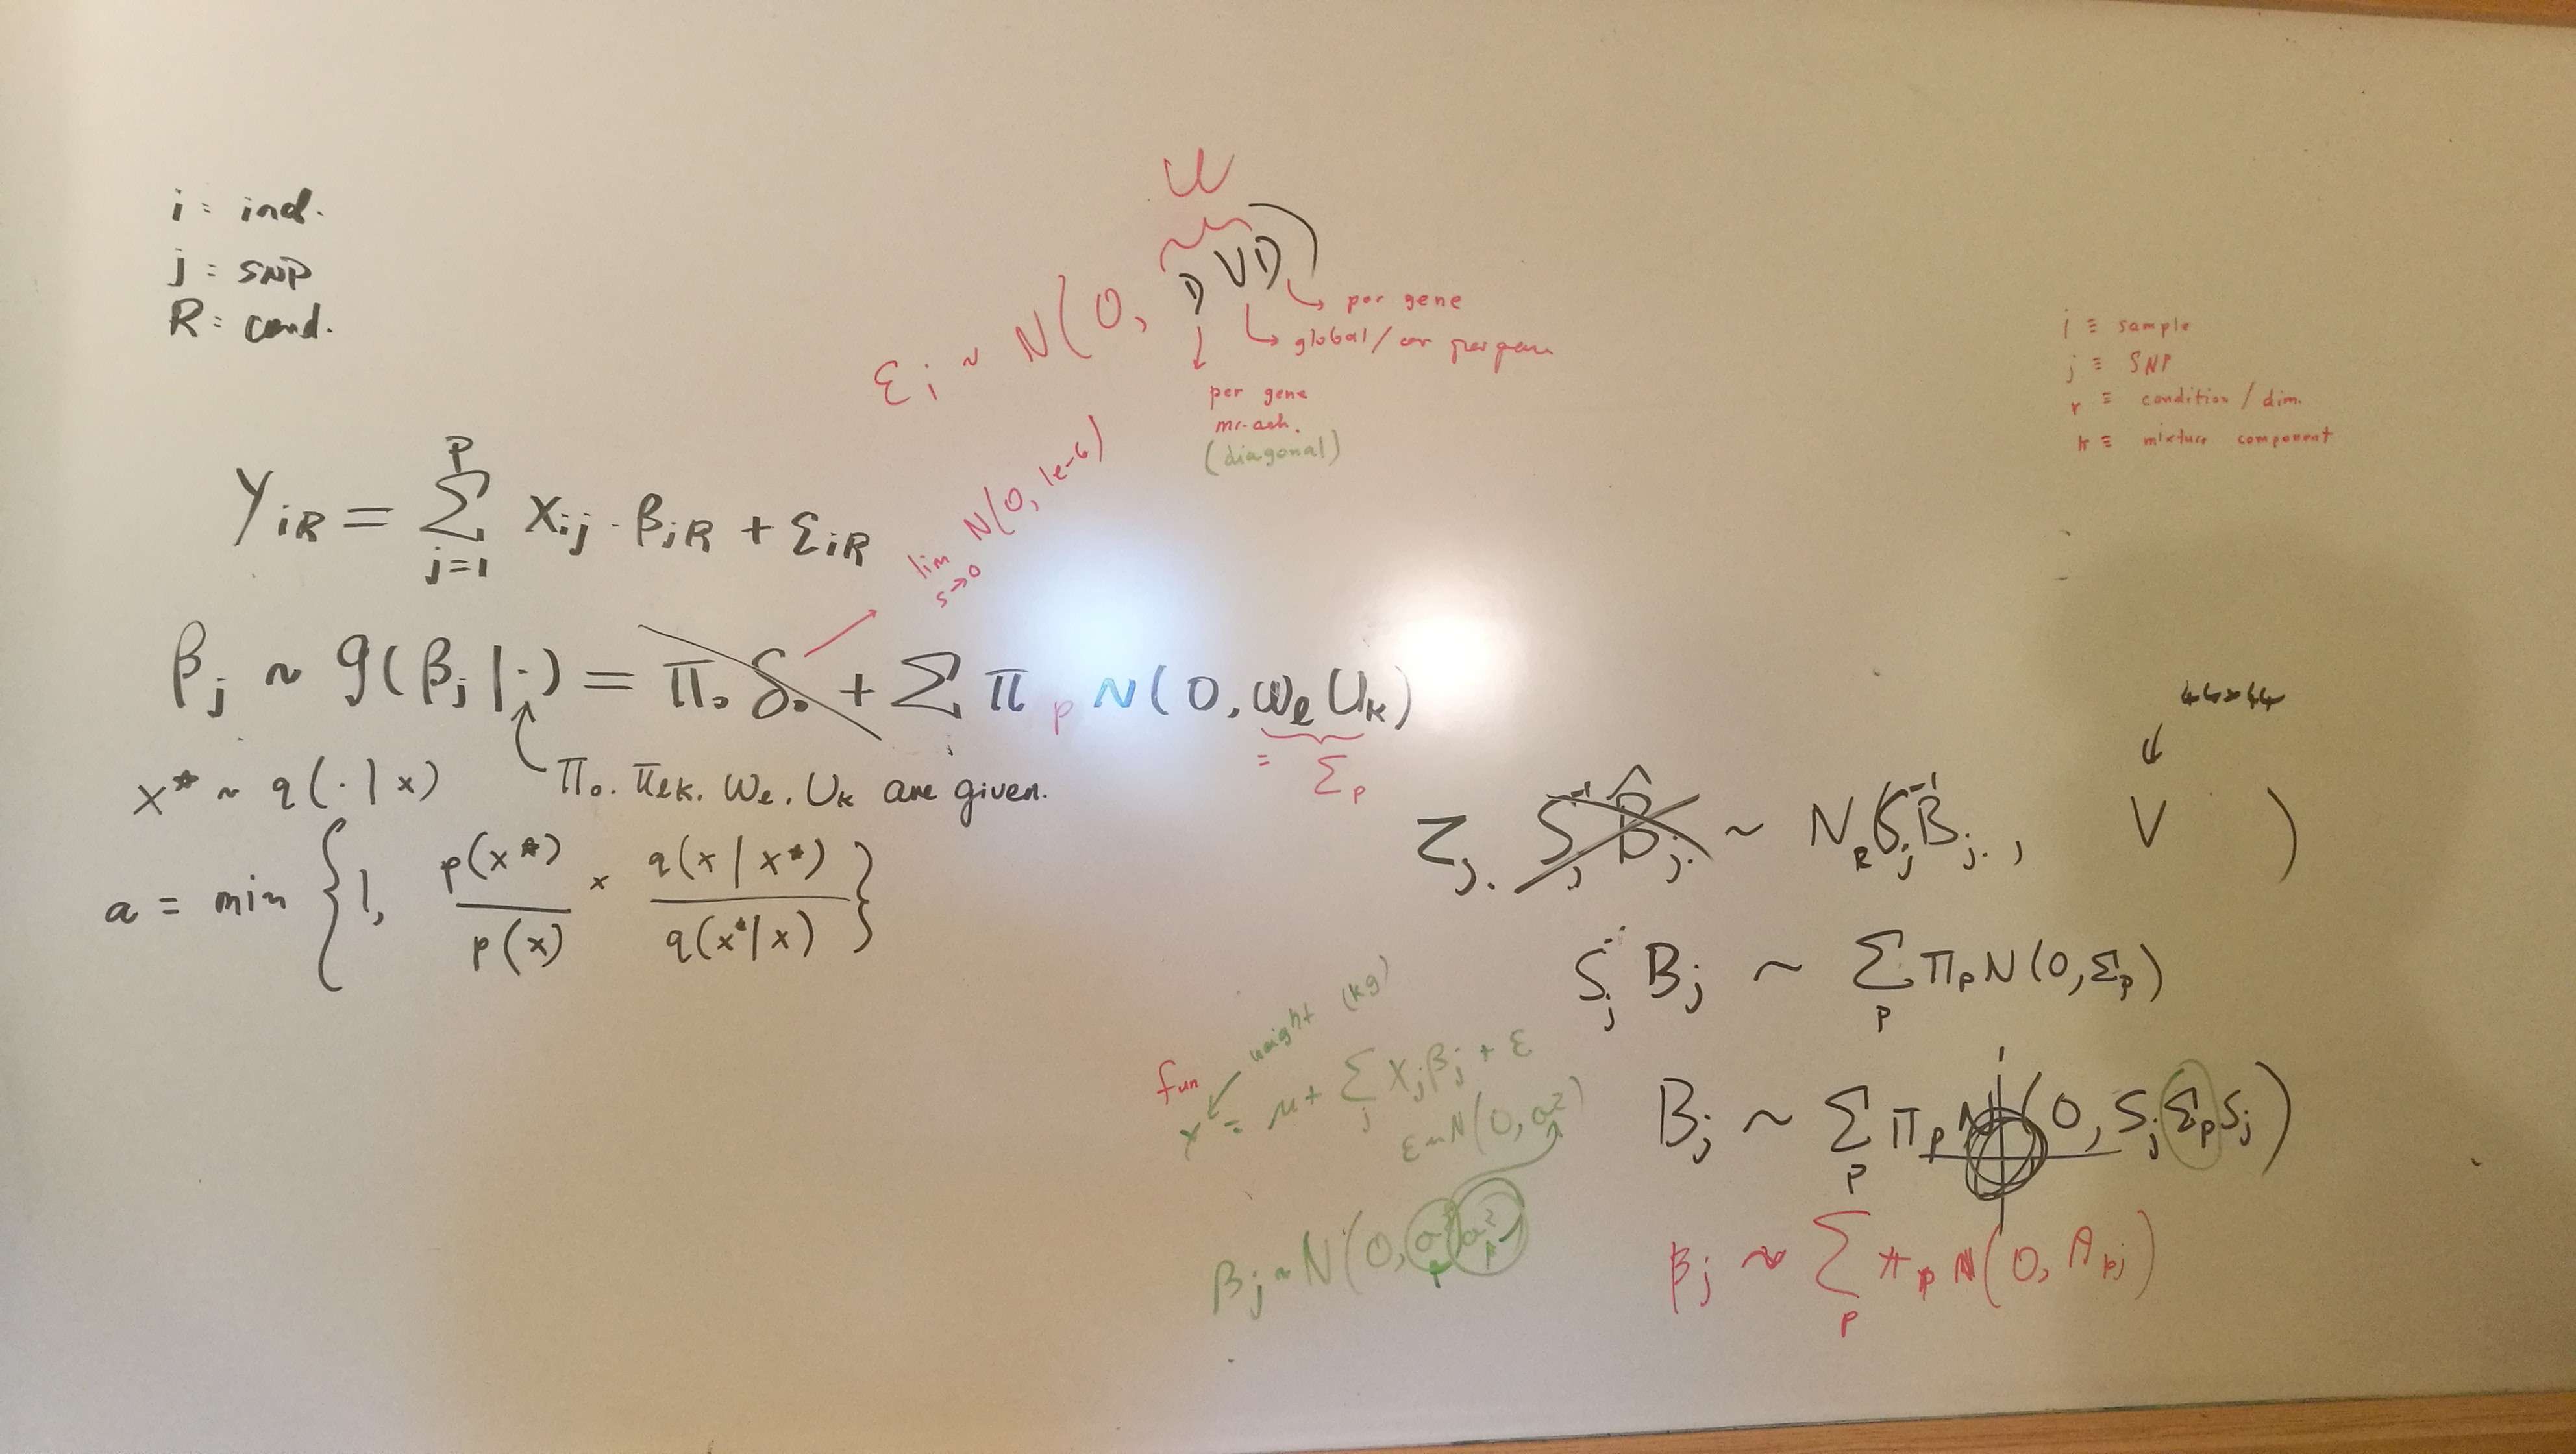 i = ind.
j = SNP
R = cond.
U
ε_i ~ N(0, DVD)
per gene
global / or per gene
per gene
mr-ash.
(diagonal)
i ≡ sample
j ≡ SNP
r ≡ condition / dim.
k ≡ mixture component
Y_iR = Σ_{j=1}^{P} X_ij · β_jR + ε_iR
lim_{s→0} N(0, 1e-6)
β_j ~ g(β_j | ·) = π_0 δ_0 + Σ π_p N(0, ω_l U_k)
= Σ_p
π_0. π_lk. ω_l. U_k are given.
x* ~ q(· | x)
a = min { 1, p(x*) / p(x) × q(x | x*) / q(x* | x) }
44×44
↓
Z_j. S_j^{-1} B̂_j. ~ N_R(S_j^{-1} B_j., V )
S_j^{-1} B_j ~ Σ_p π_p N(0, Σ_p)
B_j ~ Σ_p π_p N(0, S_j Σ_p S_j)
β_j ~ Σ_p π_p N(0, A_pj)
weight (kg)
fun
Y = μ + Σ_j X_j β_j + ε
ε ~ N(0, σ²)
β_j ~ N(0, σ² σ_p²)